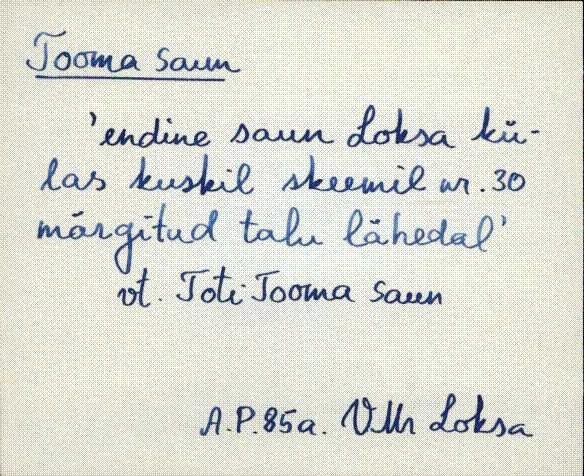 Tooma saun
'endine saun Loksa kü-
las kuskil skeemil nr. 30
märgitud talu lähedal'
vt. Toti-Tooma saun
A.P. 85a. VMr Loksa